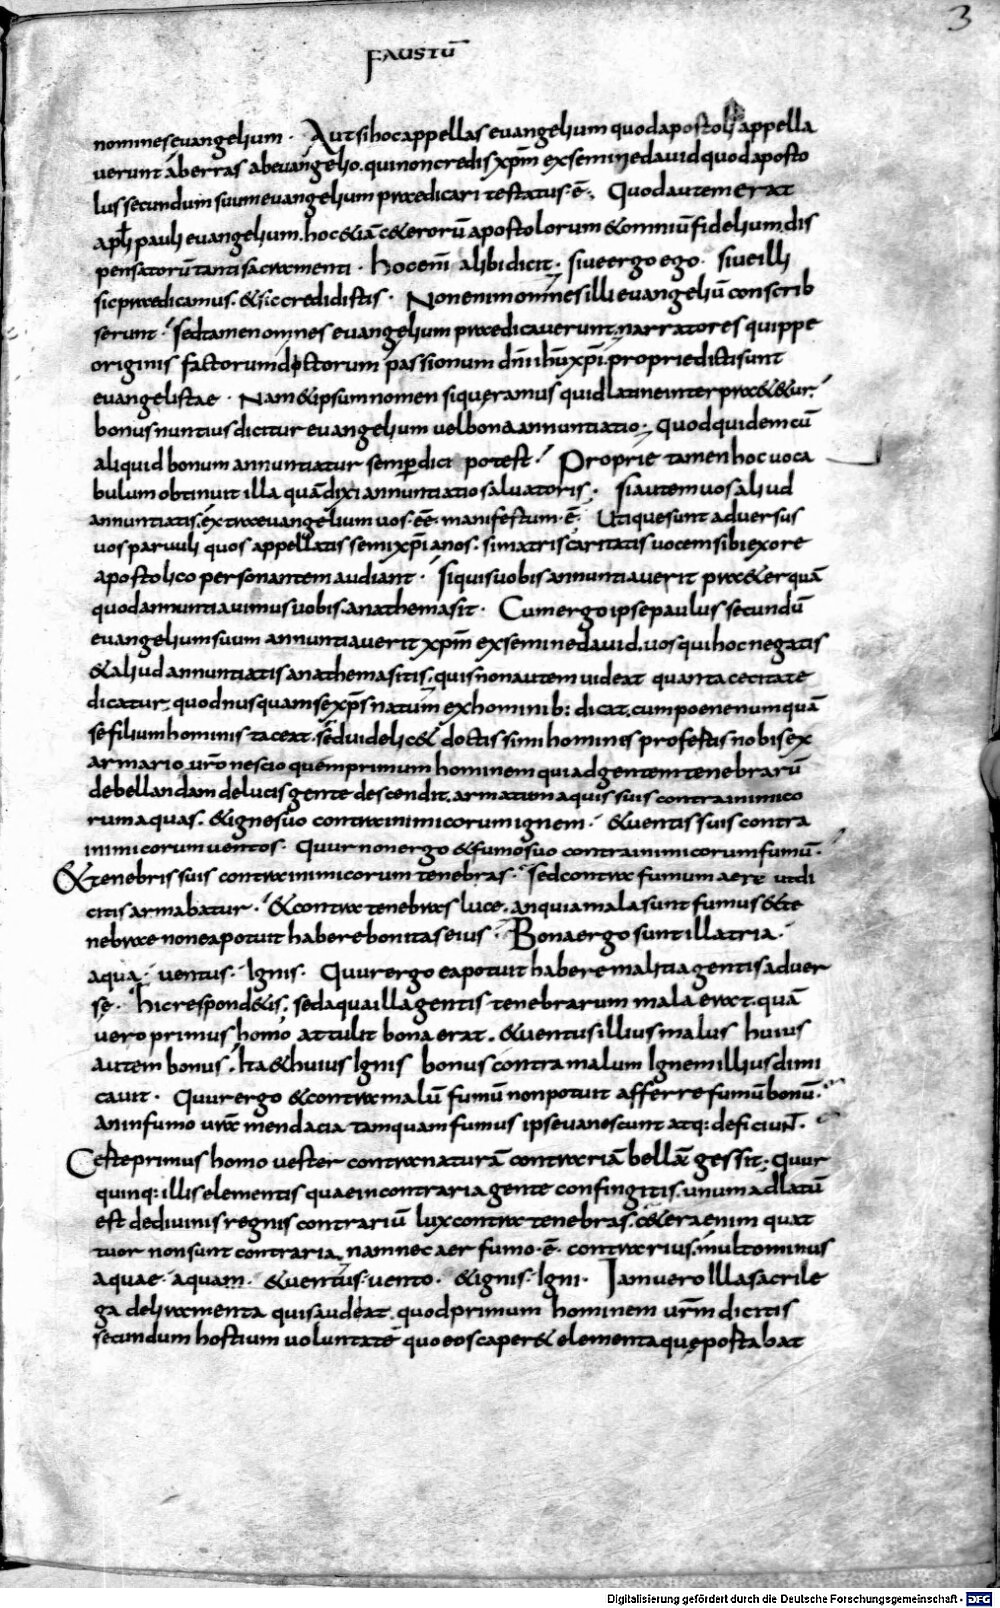 3
FAUSTŪ
nominesevangelium · Autsihocappellas evangelium quodapostoli appella
uerunt aberras abevangelio. quinoncredis xpm̄ exseminedavid quodaposto
lus secundum suumevangelium praedicari testatus·ē·, Quodautemerat
apłi pauli evangelium. hoc&iā c&erorū apostolorum &omniū fidelium. dis
pensatorū tanti sacramenti · hocenī alibidicit· siueergoego· siueilli
sicpraedicamus· &siccredidistis · Nonenimomnesilli evangeliū conscrib
serunt · sedtamenomnes evangelium praedicauerunt. narratores quippe
originis factorumdictorum passionum dn̄i ihū xpī. propriedictisunt
evangelistae · Nam&ipsumnomen siqueramus quidlatineinterpraet&ur·
bonusnuntius dicitur evangelium uelbona annuntiatio·, quodquidemcū
aliquid bonum annuntiatur semꝑdici potest· Proprie tamen hoc uoca
bulum obtinuit illa quādixi annuntiatio saluatoris· siautemuos aliud
annuntiatis. extraevangelium uos·eē· manifestum·ē· Utiquesunt adversus
uos paruuli quos appellatis semixp̄ianos. simatriscaritatis uocemsibiexore
apostolico personantem audiant· siquisuobis annuntiauerit praet&erquā
quodannuntiauimusuobis. anathemasit· Cumergo ipsepaulus secundū
evangeliumsuum annuntiauerit xpm̄ exseminedavid. uosquihocnegatis
&aliud annuntiatis anathemasitis. quisnonautem uideat quantacecitate
dicatur quodnusquamse xp̄s natum exhominib: dicat. cumpoenenumquā
sefilium hominis taceat. seduidelic& doctissimi homines profestis nobis ex
armario ur̄o nescio quemprimum hominem quiadgentemtenebrarū
debellandam delucisgente descendit. armatumaquis suis contrainimico
rumaquas. &ignesuo contrainimicorumignem· &uentis suis contra
inimicorumuentos· Quur nonergo &fumosuo contrainimicorumfumū·
&tenebris suis contrainimicorum tenebras· sedcontra fumum aere utdi
citis armabatur· &contra tenebras luce. anquiamalasunt fumus &te
nebrae noneapotuit haberebonitaseius· Bonaergo suntillatria·
aqua· uentus· Ignis· Quurergo eapotuit habere malitiagentisaduer
sę· hicrespond&is. sedaquaillagentis tenebrarum mala erat. quā
uero primus homo attulit bonaerat. &uentusilliusmalus huius
autem bonus· Ita&huius Ignis bonus contra malum Ignemilliusdimi
cauit· Quurergo &contramalū fumū nonpotuit afferrefumūbonū·
aninfumo ur̄a mendacia tamquamfumus ipsevanescunt atq: deficiunt·
Certeprimus homo uester contranaturā contrariā bellā gessit· Quur
quinq: illis elementis quaeincontrariagente confingitis. unumadlatū
est dediuinisregnis contrariū lux contra tenebras. c&eraenim quat
tuor nonsunt contraria. namnec aer fumo·ē· contrarius. multominus
aquae· aquam· &uentus· uento· &ignis· Igni· Iamuero Illasacrile
ga deliramenta quisaudeat. quodprimum hominem ur̄m dicitis
secundum hostium uoluntatē quoeoscaper& elementaquęportabat
Digitalisierung gefördert durch die Deutsche Forschungsgemeinschaft - DFG